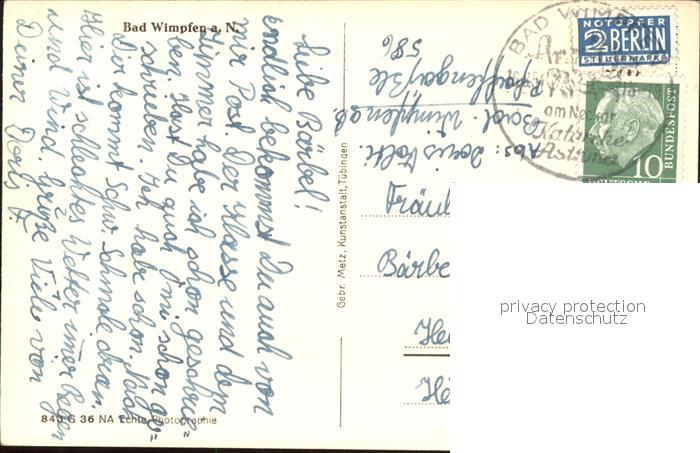 Bad Wimpfen a. N.
Liebe Bärbel!
Endlich bekommst Du auch von
mir Post. Der Klasse und dem
Himmer habe ich schon geschrie-
ben. Hast Du auch schon ge-
schrieben? Ich habe schon. Nach
Dir kommt Schw. dran.
Hier ist schlechtes Wetter immer Regen
und Wind. Grüße Viele von
Deiner Doris
843 G 36 NA Echte Photographie
Gebr. Metz, Kunstanstalt, Tübingen
Abs: Doris
Bad Wimpfen
586
Fräul
Bärbe
He
BAD WIMPFEN
am Neckar
Katarrhe
Asthma
NOTOPFER
2 BERLIN
STEUERMARKE
10
DEUTSCHE
BUNDESPOST
privacy protection
Datenschutz